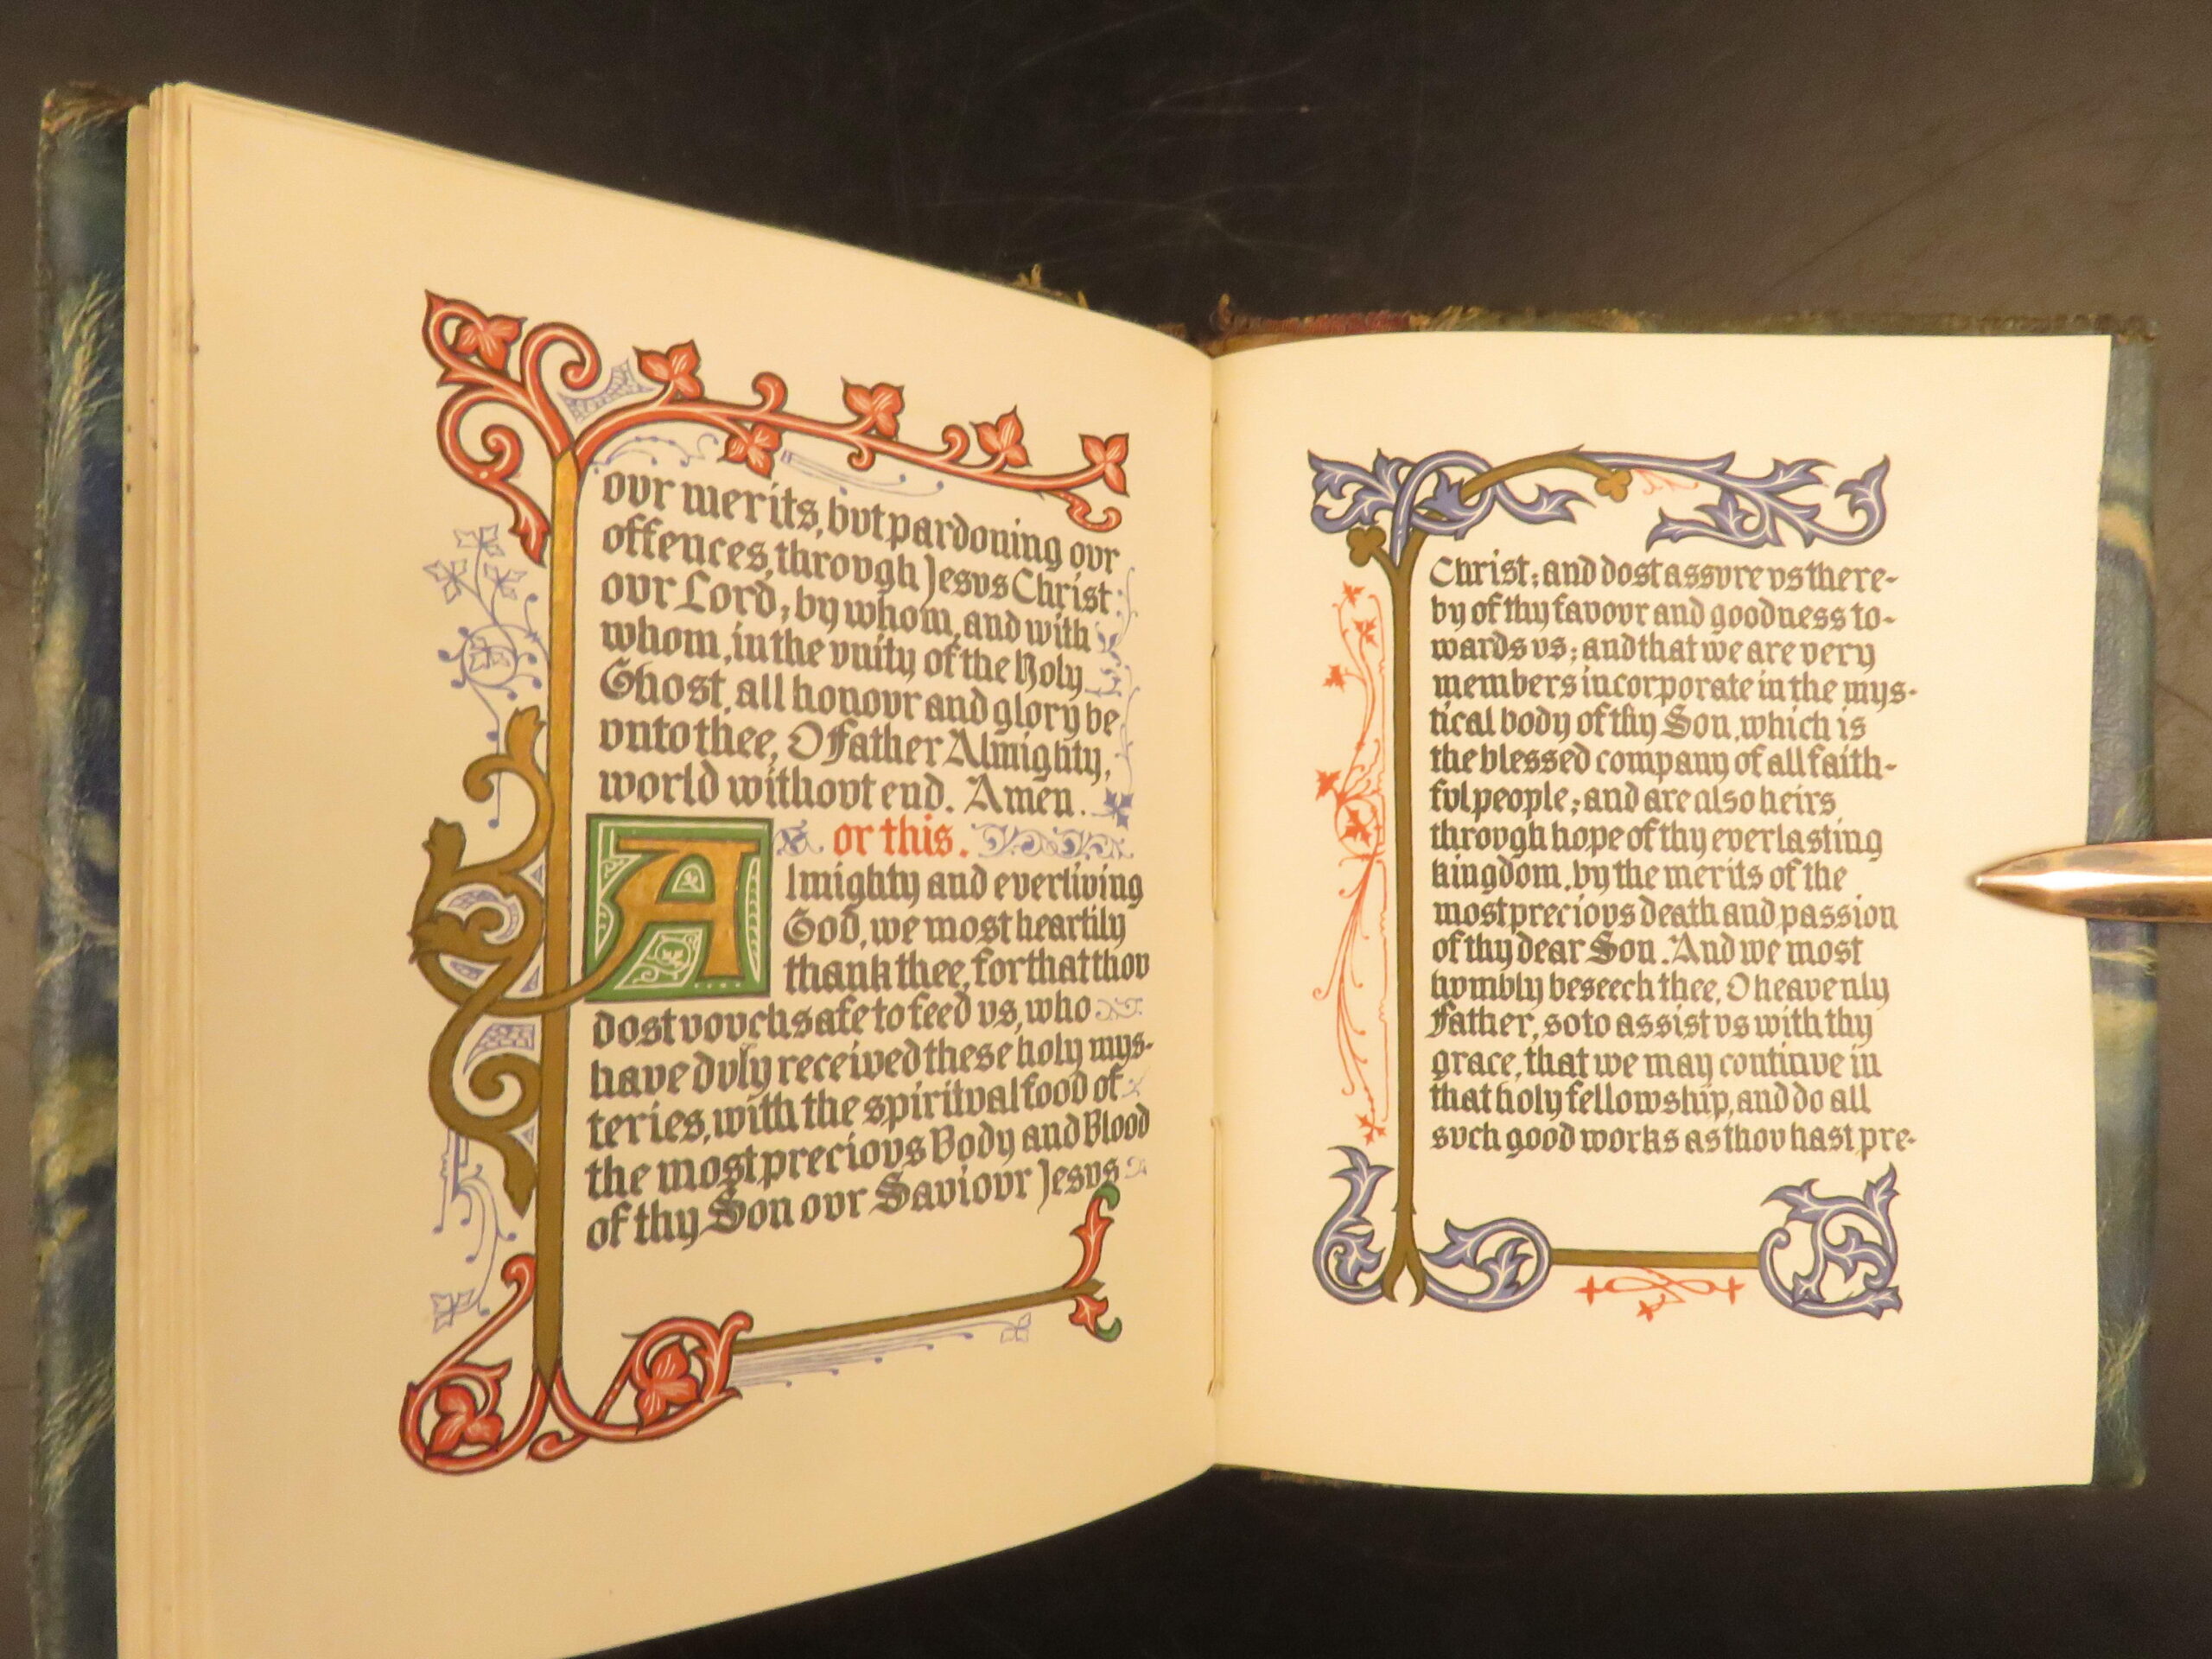 ovr merits, bvt pardoning ovr
offences, throvgh Jesvs Christ
ovr Lord; by whom, and with
whom, in the vnity of the Holy
Ghost, all honovr and glory be
vnto thee, O Father Almighty,
world withovt end. Amen.
or this.
Almighty and everliving
God, we most heartily
thank thee, for that thov
dost vovchsafe to feed vs, who
have dvly received these holy mys-
teries, with the spiritval food of
the most preciovs Body and Blood
of thy Son ovr Saviovr Jesvs
Christ; and dost assvre vs there-
by of thy favovr and goodness to-
wards vs; and that we are very
members incorporate in the mys-
tical body of thy Son, which is
the blessed company of all faith-
fvl people; and are also heirs
throvgh hope of thy everlasting
kingdom, by the merits of the
most preciovs death and passion
of thy dear Son. And we most
hvmbly beseech thee, O heavenly
Father, so to assist vs with thy
grace, that we may continve in
that holy fellowship, and do all
svch good works as thov hast pre-